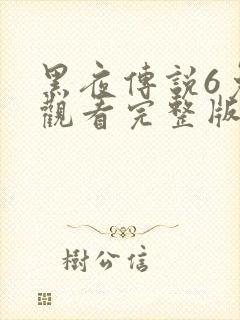 黑夜傳說6
觀看完整版
樹公信